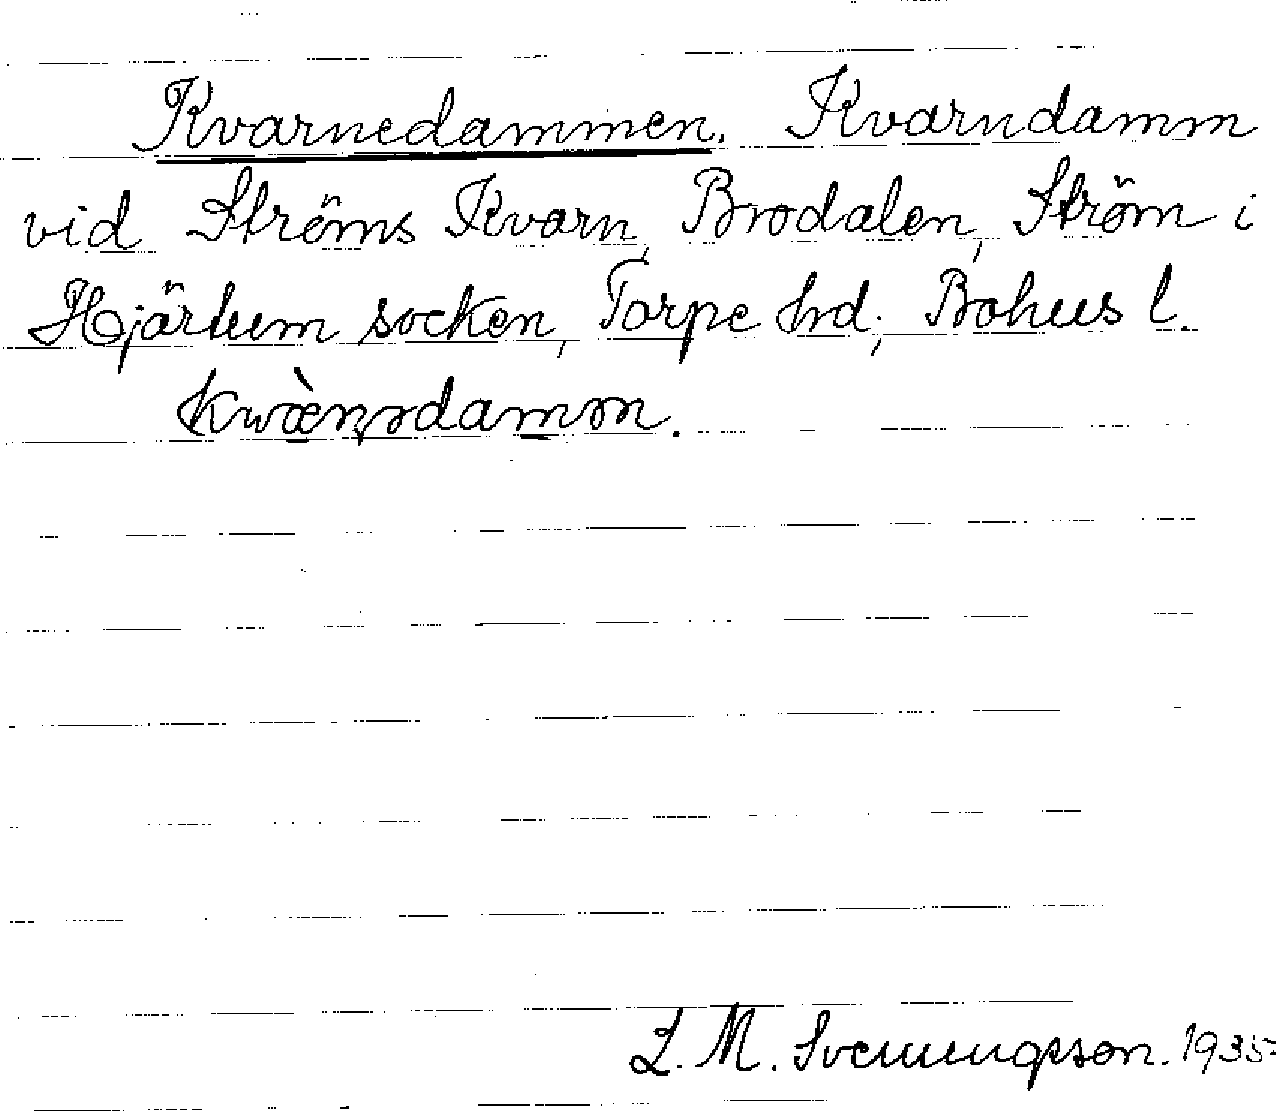 Kvarnedammen. Kvarndamm
vid Ströms Kvarn, Brodalen, Ström i
Hjärtum socken, Torpe hrd; Bohus l.
M. Svenungsson. 1935